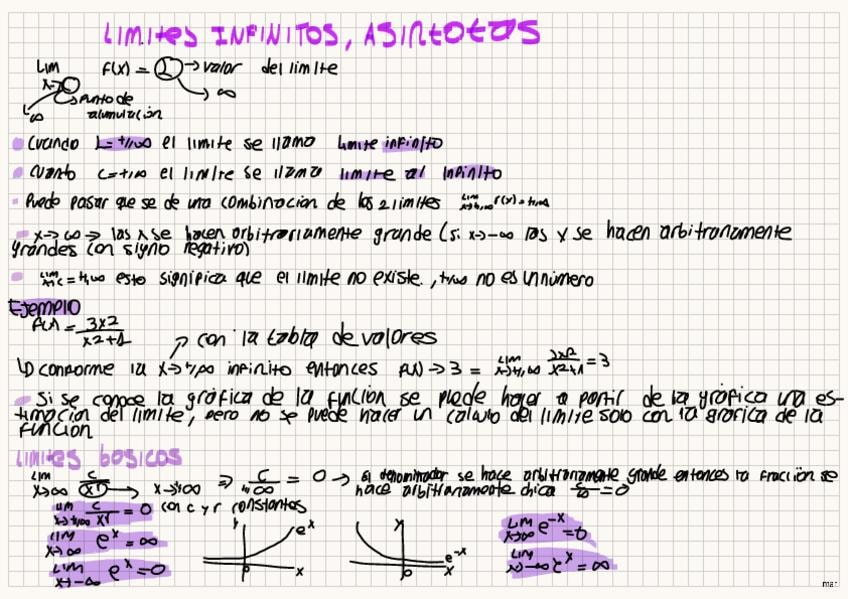 LIMITES INFINITOS, ASINTOTAS
LIM x→C f(x) = L → valor del limite
→ ∞
∞ Punto de
acumulación
Cuando L=+/-∞ el limite se llama limite infinito
Cuando C=+/-∞ el limite se llama limite al infinito
Puede pasar que se de una combinacion de los 2 limites lim x→+/-∞ f(x)=+/-∞
x→∞ → las x se hacen arbitrariamente grande (si x→-∞ las x se hacen arbitrariamente
grandes con signo negativo)
LIM x→c = +/-∞ esto significa que el limite no existe, +/-∞ no es un número
Ejemplo
f(x) = 3x2 / x2+1
con la tabla de valores
conforme la x→+/-∞ infinito entonces f(x)→3 = LIM x→+/-∞ 3x2/x2+1 = 3
Si se conoce la gráfica de la función se puede hacer a partir de la gráfica una es-
timación del limite, pero no se puede hacer un calculo del limite solo con la grafica de la
función
Limites basicos
LIM x→∞ c/xr → x→+∞ ⇒ c/+/-∞ = 0 → el denominador se hace arbitrariamente grande entonces la fracción se
hace arbitrariamente chica c/∞=0
LIM x→+/-∞ c/xr = 0 con c y r constantes
LIM x→∞ e^x = ∞
LIM x→-∞ e^x = 0
y e^x x
y e^-x x
LIM x→∞ e^-x = 0
LIM x→-∞ e^-x = ∞
mar